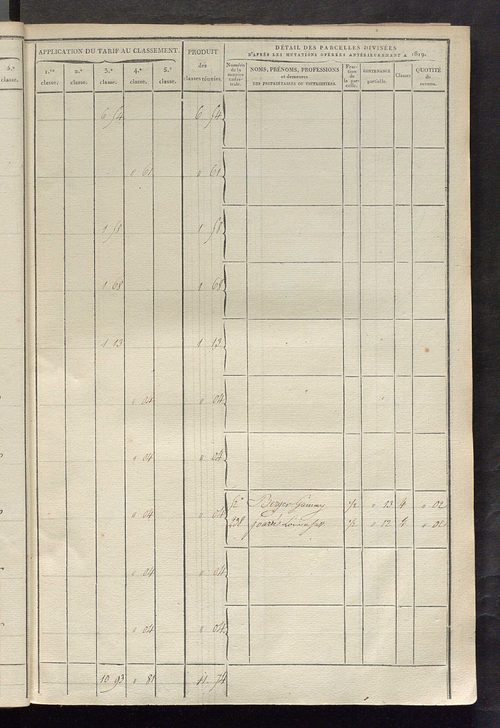 6.e
classe.
APPLICATION DU TARIF AU CLASSEMENT.
1.re classe. 2.e classe. 3.e classe. 4.e classe. 5.e classe.
PRODUIT
des
classes réunies.
DÉTAIL DES PARCELLES DIVISÉES
D'APRÈS LES MUTATIONS OPÉRÉES ANTÉRIEUREMENT A 1819.
NOMS, PRÉNOMS, PROFESSIONS
et demeures
DES PROPRIÉTAIRES OU USUFRUITIERS.
CONTENANCE
partielle.
Classes
QUOTITÉ
de
6 54 6 54
" 61 " 61
1 58 1 58
1 68 1 68
1 13 1 13
" 04 " 04
" 04 " 04
" 04 " 04
Berger 1/2 " 13 4 " 02
238 1/2 " 12 4 " 02
" 04 " 04
" 04 " 04
10 93 " 81 11 74